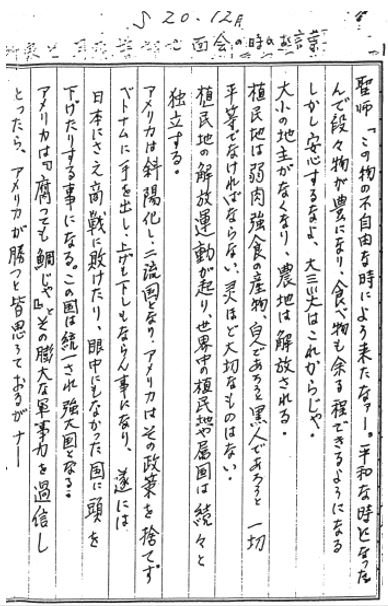 S20.12月
面会の時のお言葉
聖師「この物の不自由な時によう来たなァー。平和な時となった
んで段々物が豊になり、食べ物も余る程できるようになる
しかし安心するなよ、大三災はこれからじゃ。
大小の地主がなくなり、農地は解放される。
植民地は弱肉強食の産物、白人であろうと黒人であろうと一切
平等でなければならない、灵ほど大切なものはない。
植民地の解放運動が起り、世界中の植民地や属国は続々と
独立する。
アメリカは斜陽化し、二流国となり、アメリカはその政策を捨てず
ベトナムに手を出し、上げも下しもならん事になり、遂には
日本にさえ商戦に敗けたり、眼中にもなかった国に頭を
下げたりする事になる。この国は統一され強大国となる。
アメリカは『腐っても鯛じゃ』とその膨大な軍事力を過信し
とったら、アメリカが勝つと皆思うておるがナー